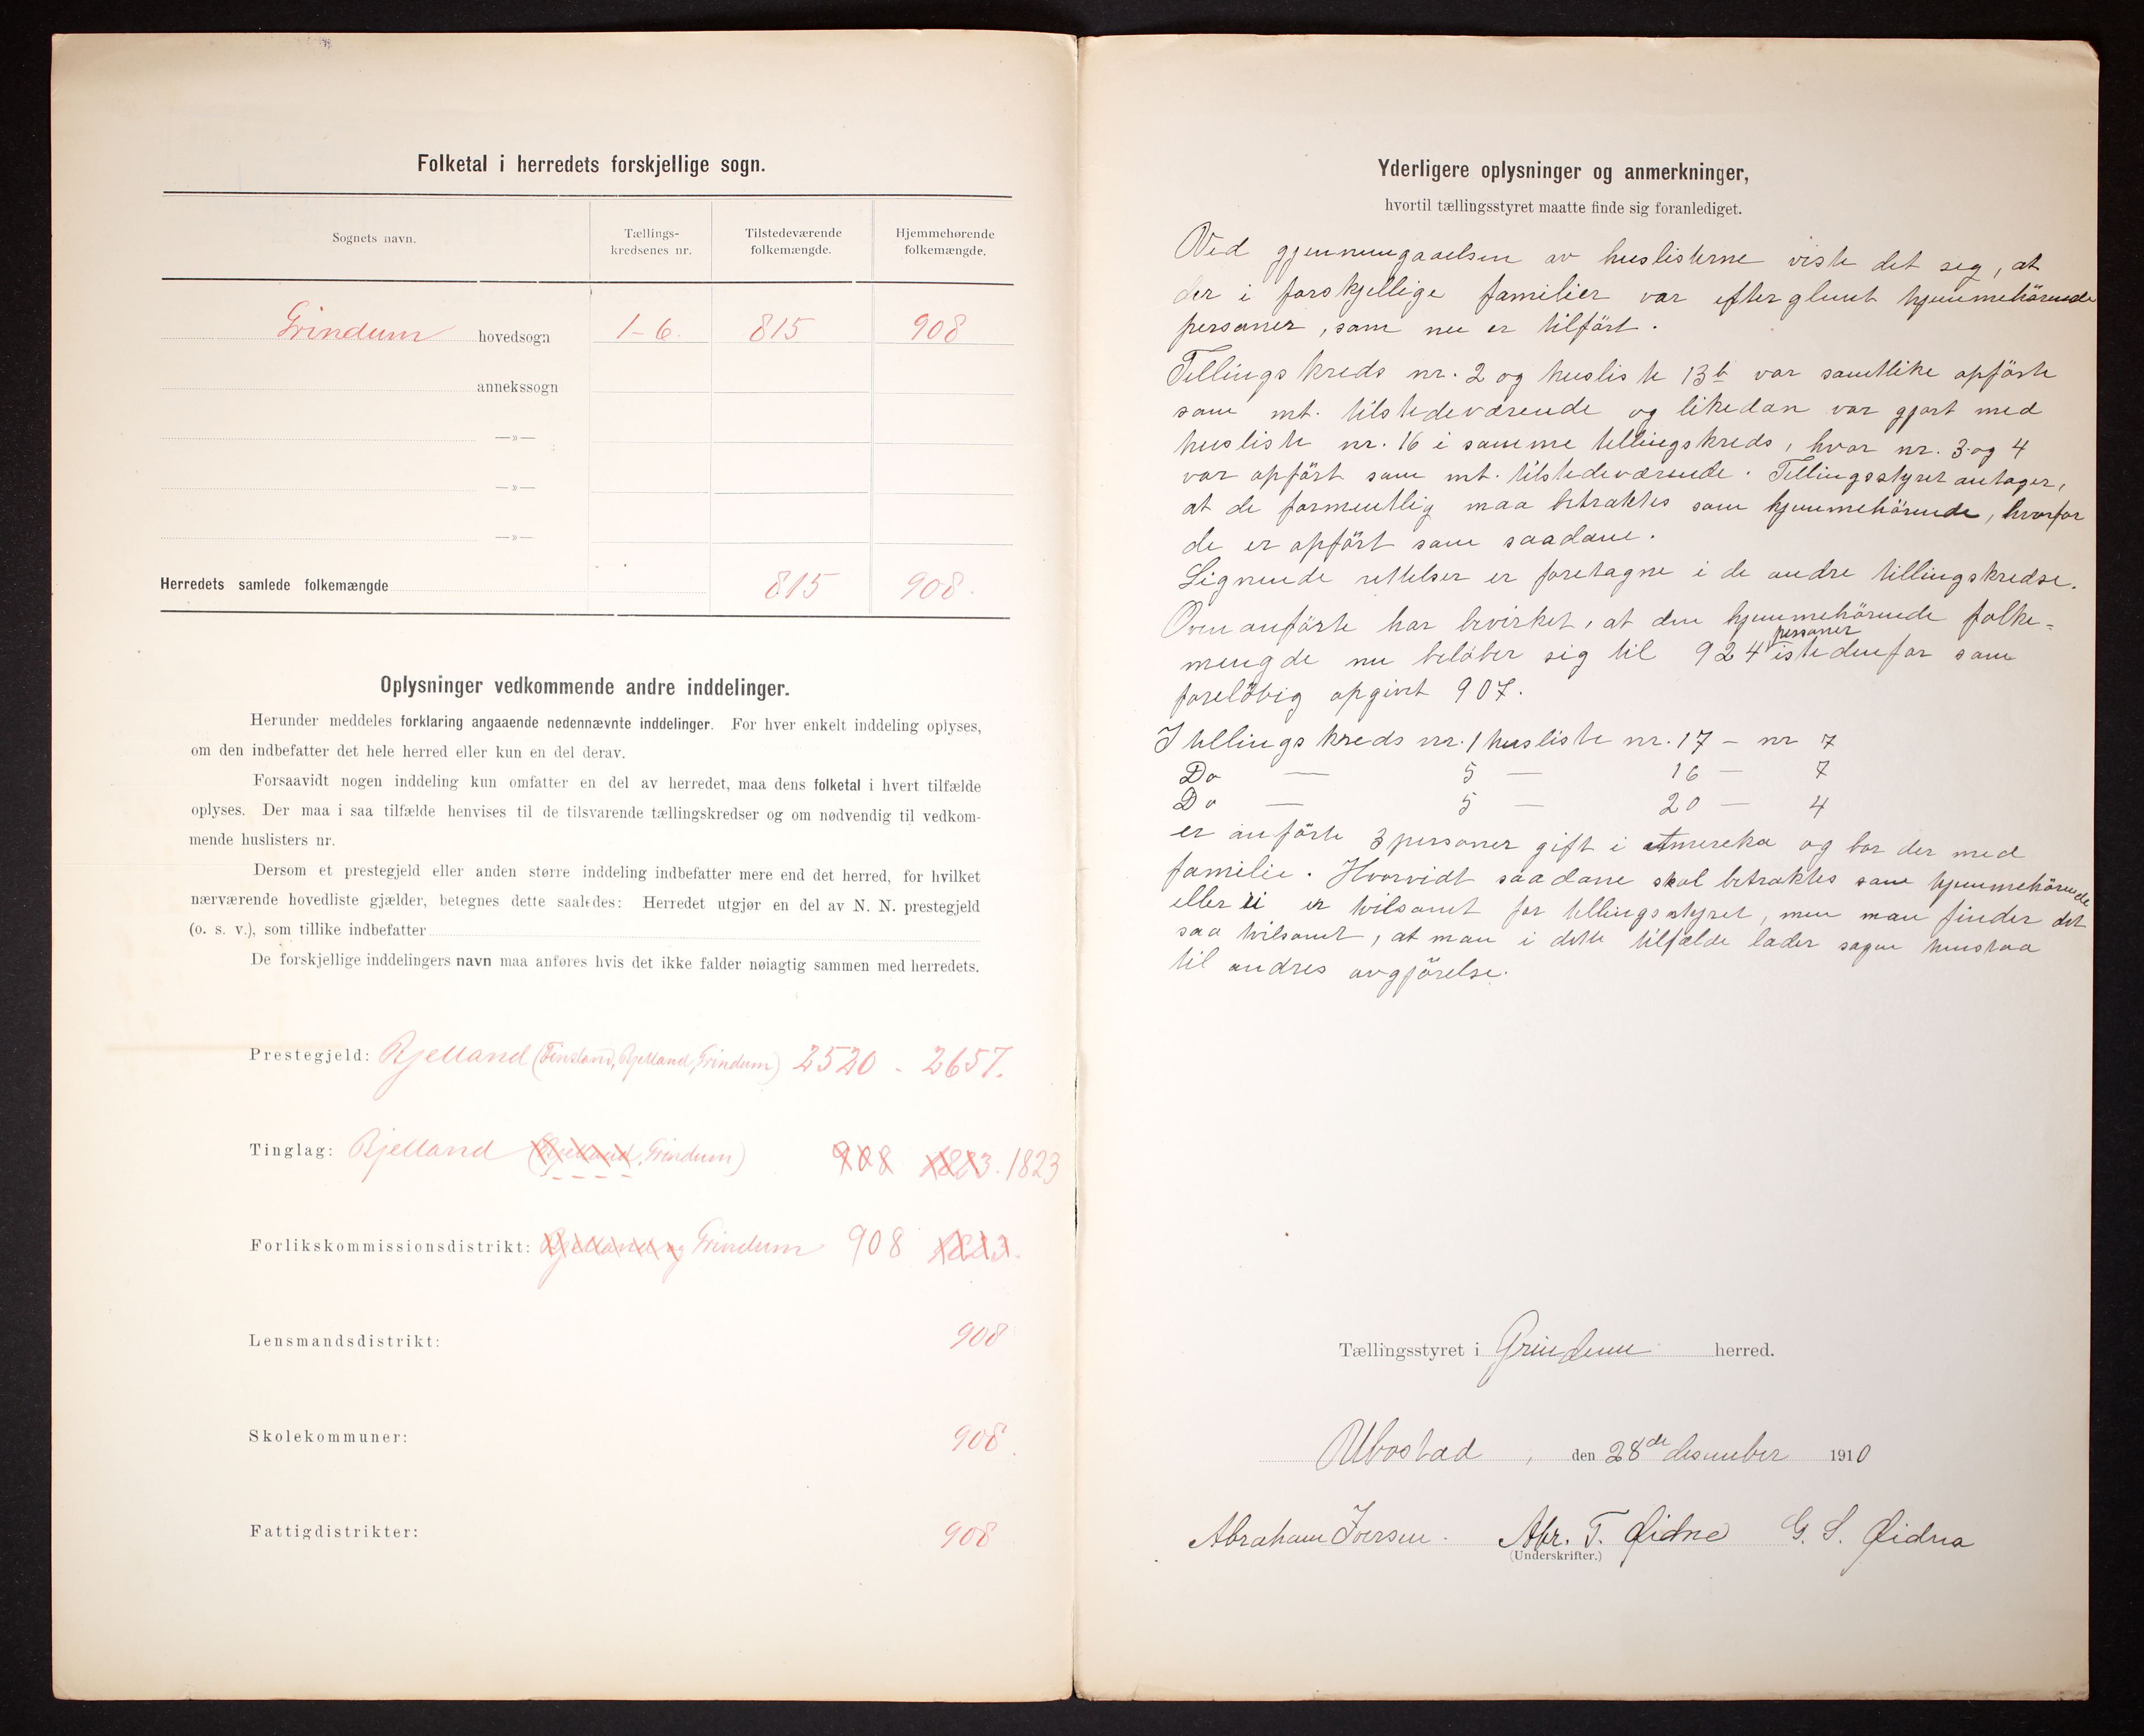 Folketal i herredets forskjellige sogn.
Sognets navn.
Tællings-
kredsenes nr.
Tilstedeværende
folkemængde.
Hjemmehørende
folkemængde.
Grindum hovedsogn 1-6. 815 908
annekssogn
—»—
—»—
—»—
Herredets samlede folkemængde 815 908.
Oplysninger vedkommende andre inddelinger.
Herunder meddeles forklaring angaaende nedennævnte inddelinger. For hver enkelt inddeling oplyses,
om den indbefatter det hele herred eller kun en del derav.
Forsaavidt nogen inddeling kun omfatter en del av herredet, maa dens folketal i hvert tilfælde
oplyses. Der maa i saa tilfælde henvises til de tilsvarende tællingskredser og om nødvendig til vedkom-
mende huslisters nr.
Dersom et prestegjeld eller anden større inddeling indbefatter mere end det herred, for hvilket
nærværende hovedliste gjælder, betegnes dette saaledes: Herredet utgjør en del av N. N. prestegjeld
(o. s. v.), som tillike indbefatter
De forskjellige inddelingers navn maa anføres hvis det ikke falder nøiagtig sammen med herredets.
Prestegjeld: Bjelland (Finsland, Bjelland, Grindum) 2520 - 2657.
Tinglag: Bjelland (Bjelland, Grindum) 908 1823. 1823
Forlikskommissionsdistrikt: Bjelland og Grindum 908 1823.
Lensmandsdistrikt: 908
Skolekommuner: 908.
Fattigdistrikter: 908
Yderligere oplysninger og anmerkninger,
hvortil tællingsstyret maatte finde sig foranlediget.
Ved gjennemgaaelsen av huslisterne viste det seg, at
der i forskjellige familier var efterglemt hjemmehörende
personer, som nu er tilfört.
Tellings kreds nr. 2 og husliste 13b var samtlike opförte
som mt. tilstedeværende og likedan var gjort med
husliste nr. 16 i samme tellingskreds, hvor nr. 3 og 4
var opfört som mt. tilstedeværende. Tellingsstyret antager,
at de formentlig maa betraktes som hjemmehörende, hvorfor
de er opfört som saadane.
Lignende rettelser er foretagne i de andre tellingskredse.
Ovenanförte har bevirket, at den hjemmehörende folke=
mengde nu belöber sig til 924 personer istedenfor som
forelöbig opgivt 907.
I tellings kreds nr. 1 husliste nr. 17 - nr 7
Do — 5 — 16 — 7
Do — 5 — 20 — 4
er anförte 3 personer gift i Amereka og bor der med
familie. Hvorvidt saadane skal betraktes som hjemmehörende
eller ei er tvilsomt for tellingsstyret, men man finder det
saa tvilsomt, at man i dette tilfælde lader sagen henstaa
til andres avgjörelse.
Tællingsstyret i Grindum herred.
Ubostad, den 28de desember 1910
Abraham Iversen. Abr. T. Øidne G. S. Øidna
(Underskrifter.)